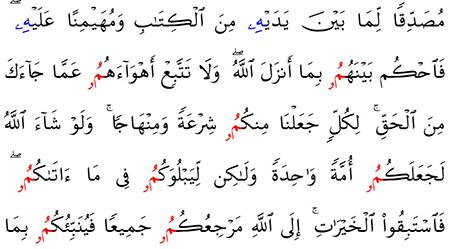 مُصَدِّقًا لِّمَا بَيۡنَ يَدَيۡهِۦ مِنَ ٱلۡكِتَٰبِ وَمُهَيۡمِنًا عَلَيۡهِۦۖ
فَٱحۡكُم بَيۡنَهُمُۥ بِمَا أَنزَلَ ٱللَّهُۖ وَلَا تَتَّبِعۡ أَهۡوَآءَهُمُۥ عَمَّا جَآءَكَ
مِنَ ٱلۡحَقِّۚ لِكُلّٖ جَعَلۡنَا مِنكُمُۥ شِرۡعَةٗ وَمِنۡهَاجٗاۚ وَلَوۡ شَآءَ ٱللَّهُ
لَجَعَلَكُمُۥ أُمَّةٗ وَٰحِدَةٗ وَلَٰكِن لِّيَبۡلُوَكُمُۥ فِي مَا ءَاتَىٰكُمُۥۖ
فَٱسۡتَبِقُواْ ٱلۡخَيۡرَٰتِۚ إِلَى ٱللَّهِ مَرۡجِعُكُمُۥ جَمِيعٗا فَيُنَبِّئُكُمُۥ بِمَا